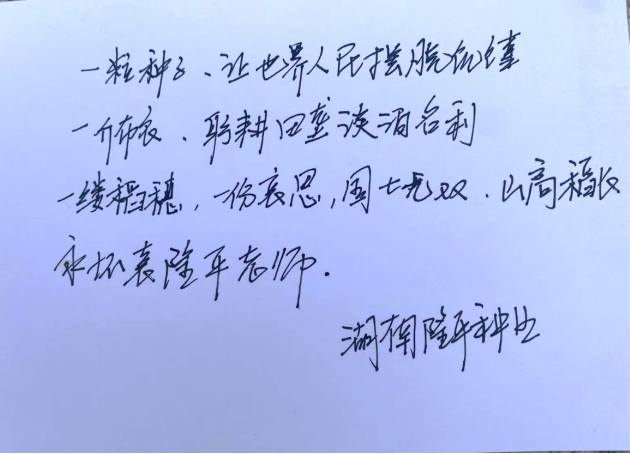 一粒种子、让世界人民摆脱饥馑
一介布衣、躬耕田垄淡泊名利
一缕稻穗,一份哀思,国士无双、山高稻长
永怀袁隆平老师.
湖南隆平种业